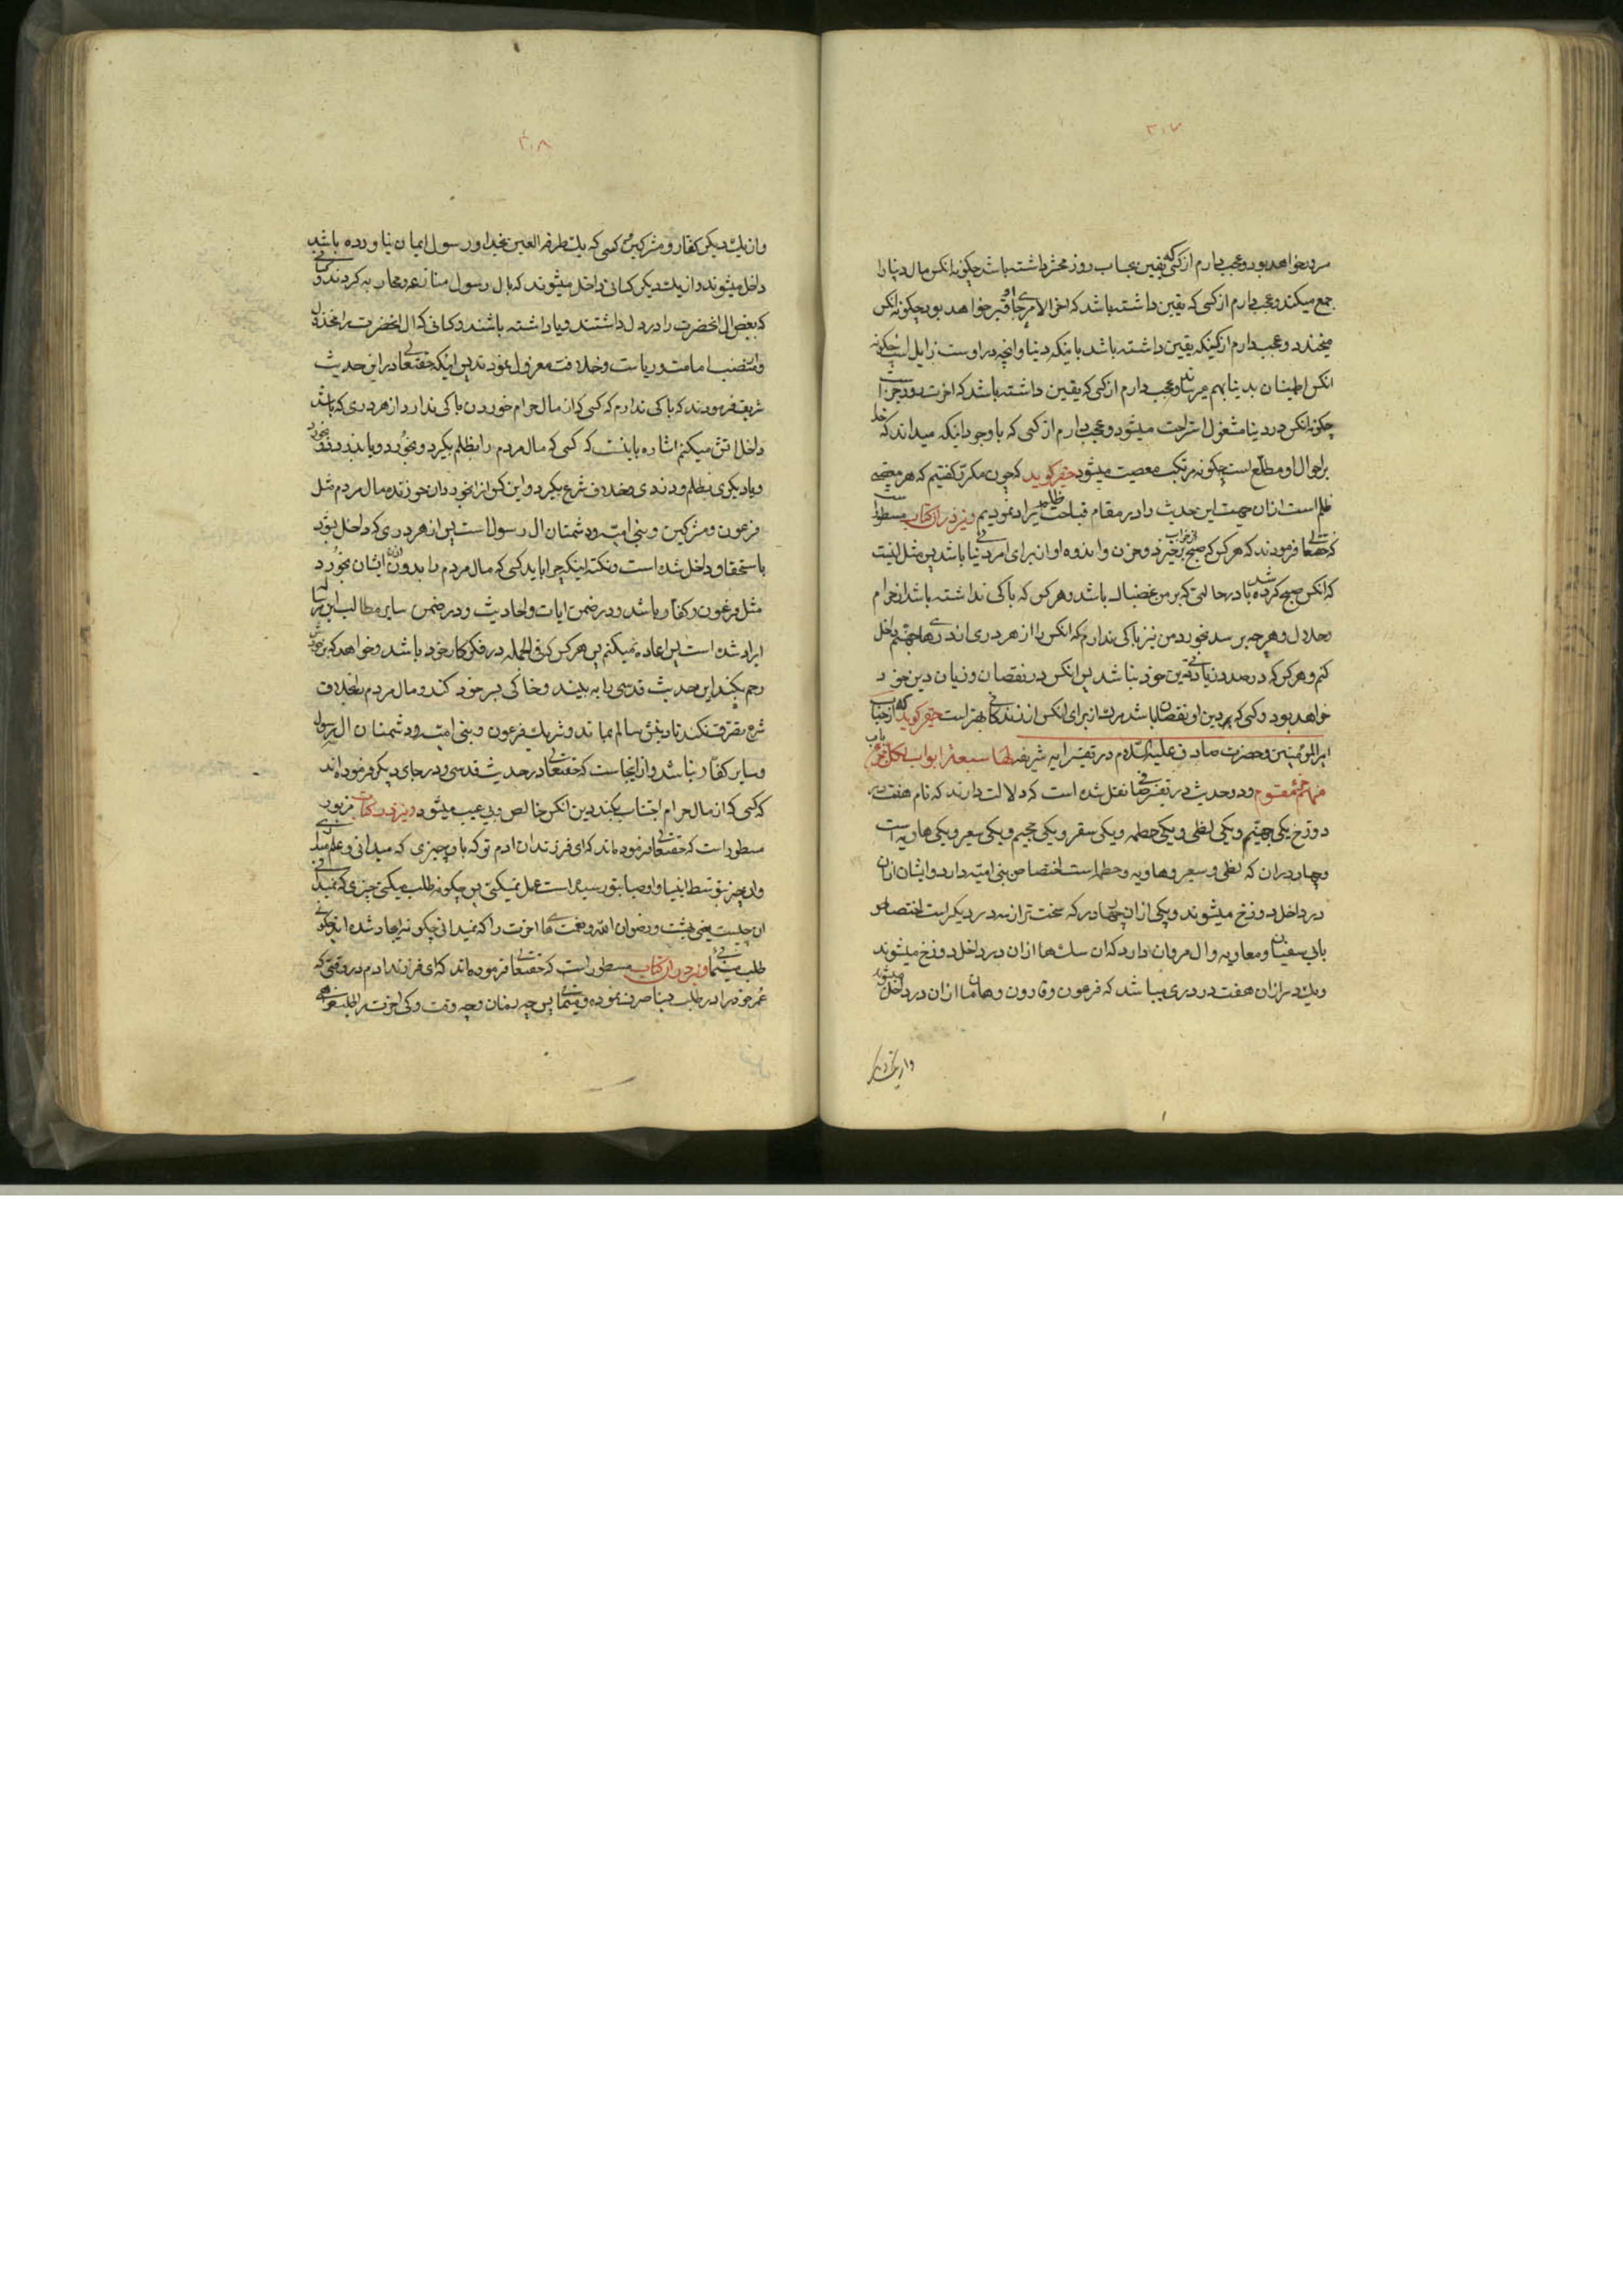 ۳۰۷
مرد خواهد بود و عجب دارم از کسی که یقین بحساب روز محشر داشته باشد چکونه انکس مال دنیا را
جمع میکند و عجب دارم از کسی که یقین داشته باشد که اخر الامر جای او قبر خواهد بود چکونه انکس
میخندد و عجب دارم از کسیکه یقین داشته باشد باینکه دنیا و انچه در اوست زایل است چکونه
انکس اطمینان بدنیا بهم میرساند و عجب دارم از کسی که یقین داشته باشد که اخرت و
چکونه انکس در دنیا مشغول استراحت میشود و عجب دارم از کسی که با وجود اینکه میداند که خدا
بر احوال او مطلع است چکونه مرتکب معصیت میشود حقیر کوید که چون مکرر کفتیم که هر معصیة
ظلم است از ان جهت این حدیث را در مقام قباحت ظلم ایراد نمودیم و نیز در ان کتاب مسطور است
که حقتعالی فرمودند که هر کس که صبح از خواب برخیزد و حزن و اندوه او از برای امر دنیائی باشد پس مثل اینست
که انکس صبح کرده باشد در حالتی که بر من غضبناک باشد و هر کس که باکی نداشته باشد از حرام
و حلال و هر چه برسد بخورد من نیز باکی ندارم که انکس را از هر دری از درهای جهنم داخل
کنم و هر کس که در صدد زیادتی دین خود نباشد پس انکس در نقصان و زیان دین خود
خواهد بود و کسی که دین او نقصان باشد مردن از برای انکس از زندکانی بهتر است حقیر کوید که از جناب
امیر المؤمنین و حضرت صادق علیه السلام در تفسیر ایه شریفه لها سبعة ابواب لکل باب
منهم جزء مقسوم دو حدیث در تفسیر صافی نقل شده است که دلالت دارند که نام هفت در
دوزخ یکی جهنم و یکی لظی و یکی حطمه و یکی سقر و یکی جحیم و یکی سعیر و یکی هاویه است
و چهار در ان که لظی و سعیر و هاویه و حطمه است اختصاص به بنی امیه دارد و ایشان از ان
در داخل دوزخ میشوند و یکی از ان چهار در که سخت تر از سه در دیکر است اختصاص
بابی سفیان و معاویه و ال مروان دارد که ان سک ها از ان در داخل دوزخ میشوند
و یک در از ان هفت در دری میباشد که فرعون و قارون و هامان از ان در داخل میشوند
و از یک در دیکر
۳۰۸
و از یک در دیکر کفار و مشرکین و کسی که یک طرفة العین بخدا و رسول ایمان نیاورده باشد
داخل میشوند و از یک در دیکر کسانی داخل میشوند که بال رسول منازعه و محاربه کردند و کسانی
که بغض ال انحضرت را در دل داشتند و یا داشته باشند و کسانی که ال انحضرت را مخذول
و از منصب امامت و ریاست و خلافت معزول نمودند پس اینکه حقتعالی در این حدیث
شریف فرمودند که باکی ندارم که کسی که از مال حرام خوردن باکی ندارد از هر دری که باشد
داخل اتش میکنم اشاره باینست که کسی که مال مردم را بظلم بکیرد و بخورد و یا بدزدد و بخورد
و یا دیکری بظلم و دزدی و خلاف شرع بکیرد و این کس از ان بخورد ان خورنده مال مردم مثل
فرعون و مشرکین و بنی امیه و دشمنان ال رسول است پس از هر دری که داخل شود
باستحقاق داخل شده است و نکته اینکه چرا باید کسی که مال مردم را بدون اذن ایشان بخورد
مثل فرعون و کفار باشد در ضمن ایات و احادیث و در ضمن سایر مطالب این رساله
ایراد شده است پس اعاده نمیکنم پس هر کس که فی الجمله در فکر کار خود باشد و خواهد که بر خودش
رحم بکند این حدیث قدسی را به بیند و خاکی بر سر خود کند و مال مردم بخلاف
شرع تصرف نکند تا دینش سالم بماند و شریک فرعون و بنی امیه و دشمنان ال رسول
و سایر کفار نباشد و از اینجاست که حقتعالی در حدیث قدسی و در جای دیکر فرموده اند
که کسی که از مال حرام اجتناب بکند دین انکس خالص و بی عیب میشود و نیز در کتاب مزبور
مسطور است که حقتعالی فرموده اند که ای فرزندان ادم تو که بان چیزی که میدانی و علم
و ان چیز بتوسط انبیا و اوصیا بتو رسیده است عمل نمیکنی پس چکونه طلب میکنی چیزی که نمیدانی
ان چیست یعنی بهشت و رضوان الله و نعمت های اخرت را که نمیدانی چکونه ایجاد شده اند چکونه
طلب مینمائی و نیز در ان کتاب مسطور است که حقتعالی فرموده اند که ای فرزند ادم در وقتی که
عمر خود را در طلب دنیا صرف نموده و مینمائی پس چه زمان و چه وقت و کی اخرت را طلب خواهی